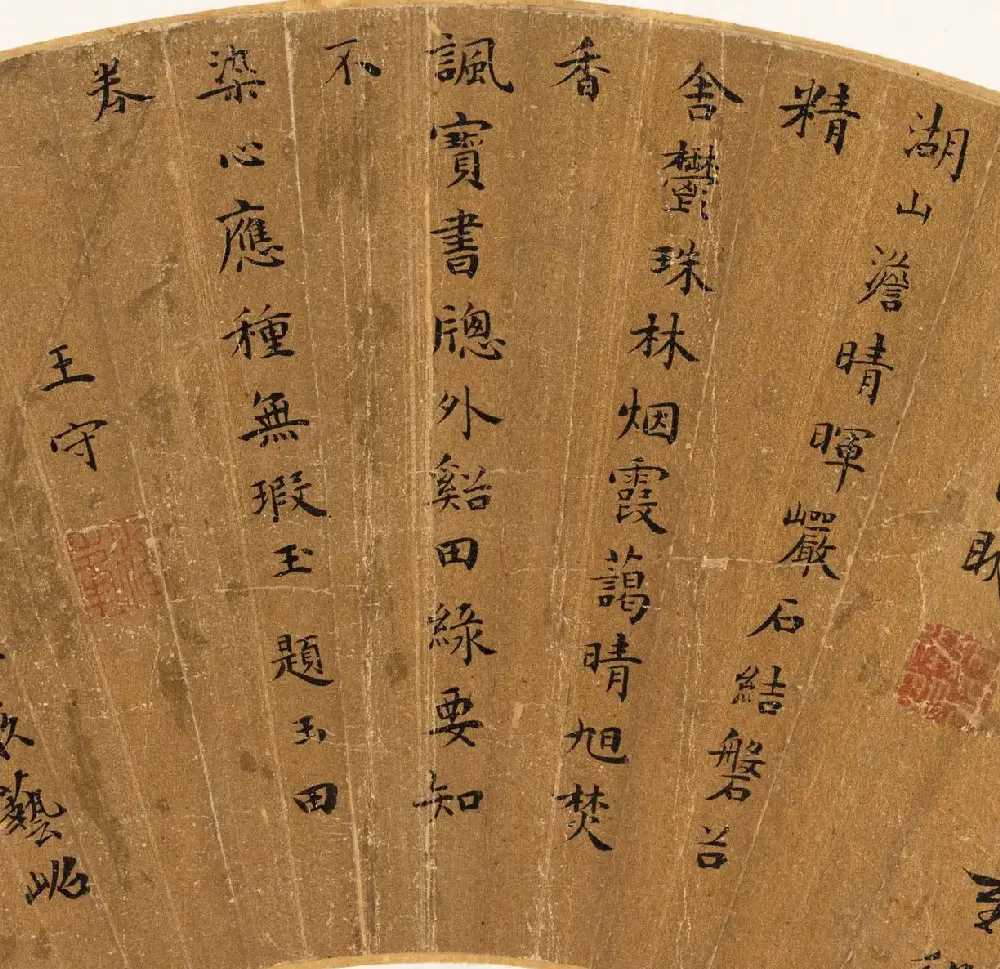 湖山澹晴暉巖石結磐谷
精
舍鬱珠林烟霞藹晴旭焚
香
諷寶書牕外谿田綠要知
不
染心應種無瑕玉題玉田
卷
王守
藝